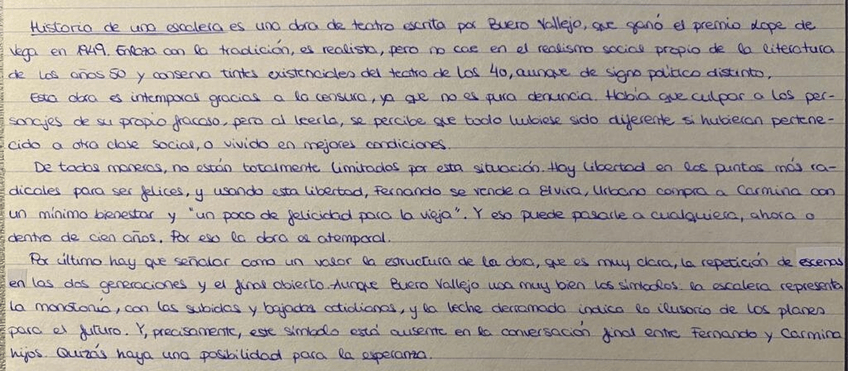 Historia de una escalera es una obra de teatro escrita por Buero Vallejo, que ganó el premio Lope de
Vega en 1949. Enlaza con la tradición, es realista, pero no cae en el realismo social propio de la literatura
de los años 50 y conserva tintes existenciales del teatro de los 40, aunque de signo político distinto.
Esta obra es intemporal gracias a la censura, ya que no es pura denuncia. Había que culpar a los per-
sonajes de su propio fracaso, pero al leerla, se percibe que todo hubiese sido diferente si hubieran pertene-
cido a otra clase social, o vivido en mejores condiciones.
De todas maneras, no están totalmente limitados por esta situación. Hay libertad en los puntos más ra-
dicales para ser felices, y usando esta libertad, Fernando se vende a Elvira, Urbano compra a Carmina con
un mínimo bienestar y "un poco de felicidad para la vieja". Y eso puede pasarle a cualquiera, ahora o
dentro de cien años. Por eso la obra es atemporal.
Por último hay que señalar como un valor la estructura de la obra, que es muy clara, la repetición de escenas
en las dos generaciones y el final abierto. Aunque Buero Vallejo usa muy bien los símbolos: la escalera representa
la monotonía, con las subidas y bajadas cotidianas, y la leche derramada indica lo ilusorio de los planes
para el futuro. Y, precisamente, este símbolo está ausente en la conversación final entre Fernando y Carmina
hijos. Quizás haya una posibilidad para la esperanza.